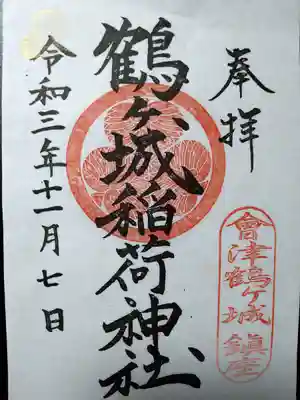 奉拝
會津鶴ヶ城鎮座
鶴ヶ城稲荷神社
令和三年十一月七日